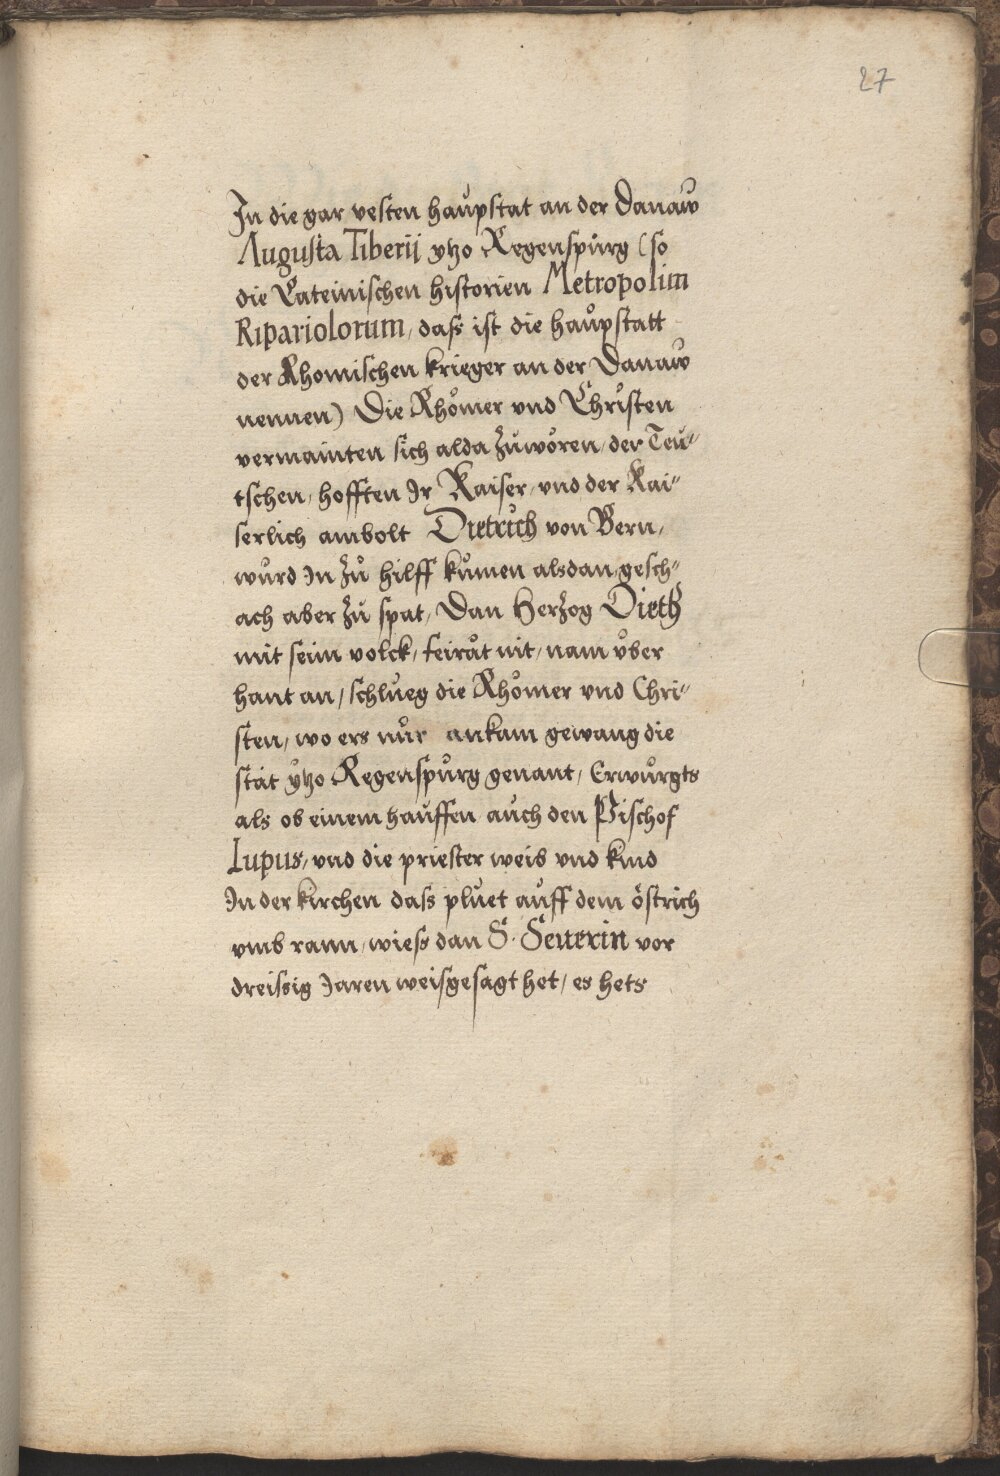 27
In die gar vesten haupstat an der Danaw
Augusta Tiberij ytzo Regenspurg (so
die Lateinischen historien Metropolim
Ripariolorum, daß ist die haupstatt
der Rhomischen krieger an der Danaw
nennen) Die Rhömer vnd Christen
vermainten sich alda zuwören, der Teu-
tschen, hofften Ir Kaiser, vnd der Kai-
serlich ambolt Dietrich von Bern,
wurd In zu hilff kumen alsdan, gesch-
ach aber zu spat, Dan Herzog Dieth
mit seim volck, feirat nit, nam vber
hant an, schlueg die Rhömer vnd Chri-
sten, wo ers nur ankam gewang die
stat ytzo Regenspurg genant, Erwurgts
als ob einem hauffen auch den Pischof
Lupus, vnd die priester weib vnd kind
In der kirchen daß pluet auff dem östrich
vmb rann, wieß dan S. Seuerin vor
dreissig Jaren weißgesagt het, es hets